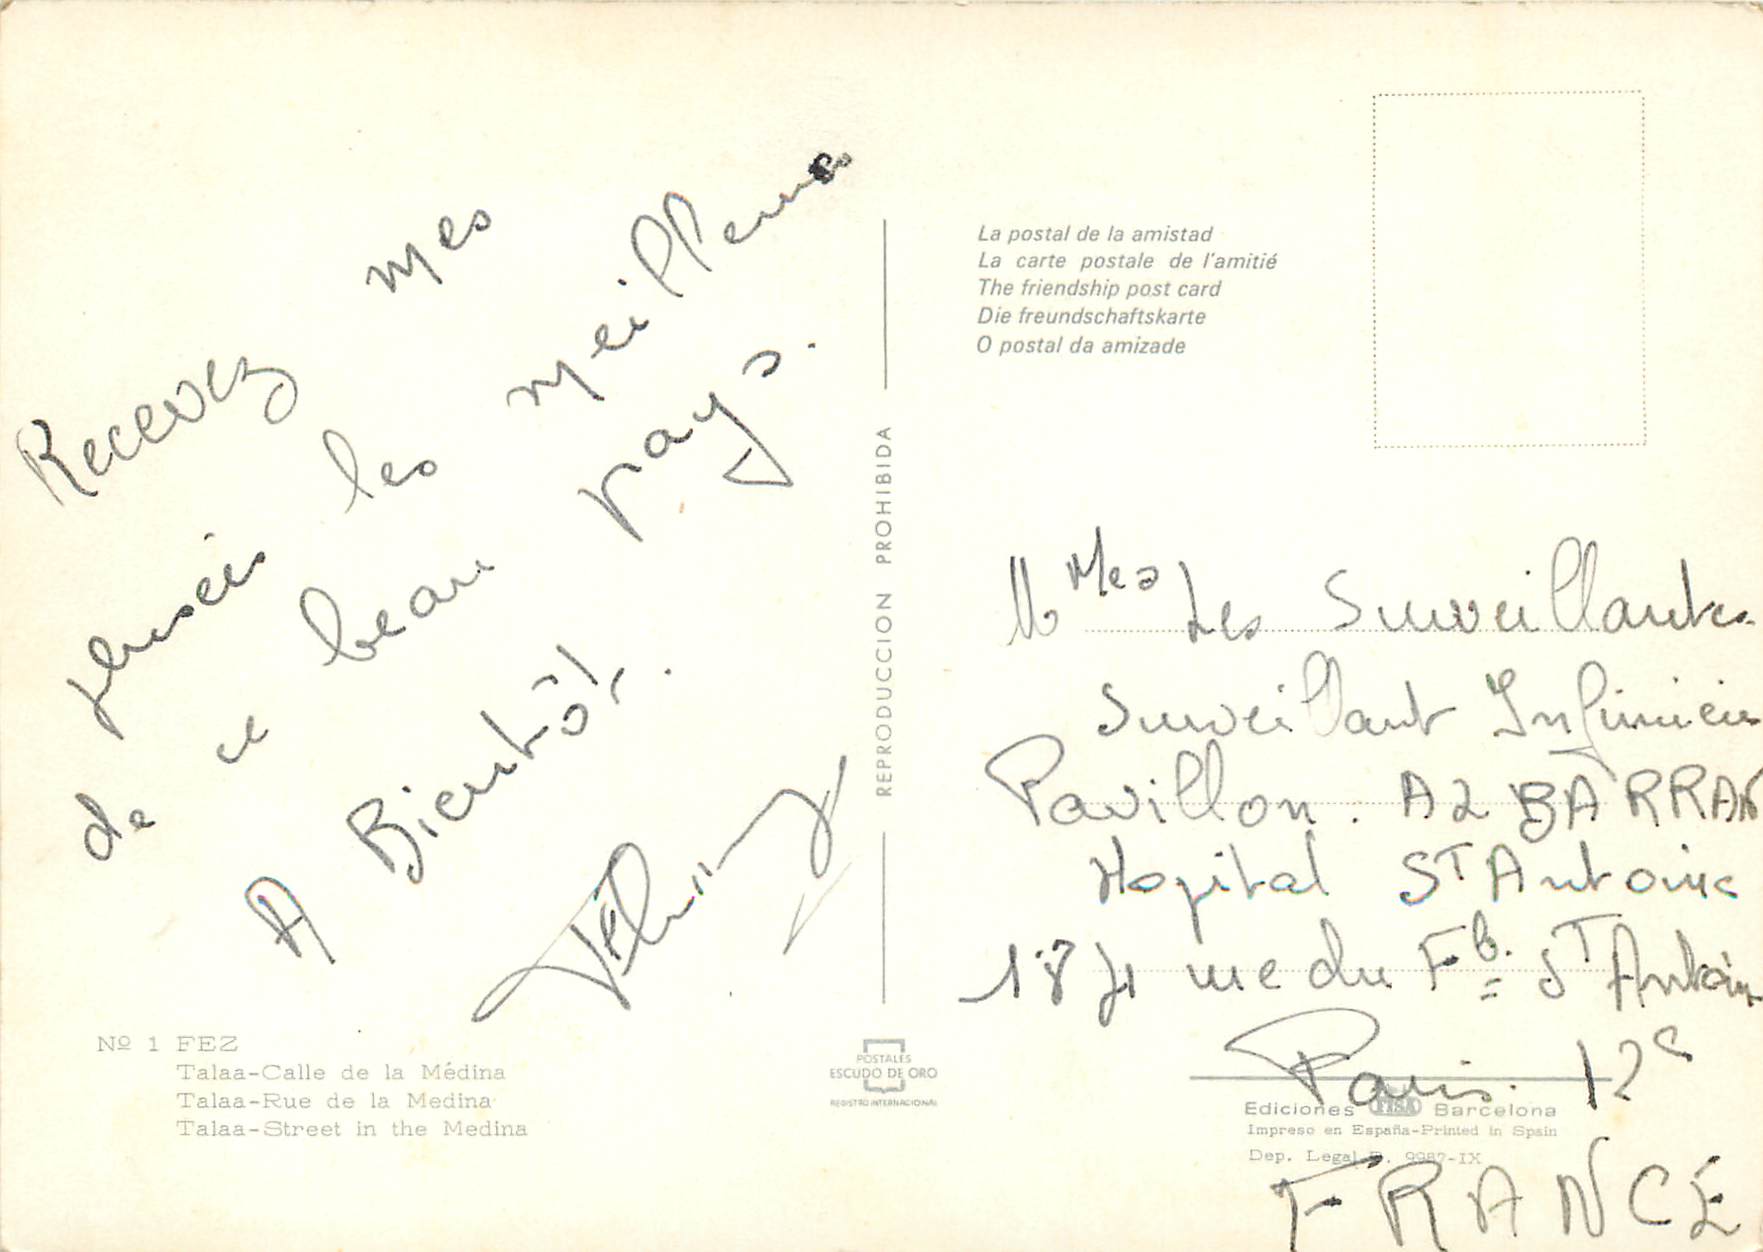 Recevez mes
pensées les meilleures
de ce beau pays.
A Bientôt.
Nº 1 FEZ
Talaa-Calle de la Médina
Talaa-Rue de la Medina
Talaa-Street in the Medina
REPRODUCCION PROHIBIDA
POSTALES
ESCUDO DE ORO
REGISTRO INTERNACIONAL
La postal de la amistad
La carte postale de l'amitié
The friendship post card
Die freundschaftskarte
O postal da amizade
Mmes Les Surveillantes
Surveillant Infirmier
Pavillon. A2 BARRAN
Hopital ST Antoine
184 rue du Fb. ST Antoin
Paris. 12e
FRANCE
Ediciones FISA Barcelona
Impreso en España-Printed in Spain
Dep. Legal B. 9987-IX